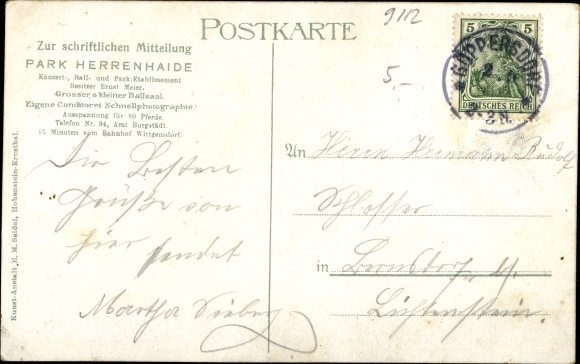 9112
POSTKARTE
Zur schriftlichen Mitteilung
PARK HERRENHAIDE
Konzert-, Ball- und Park-Etablissement
Besitzer Ernst Meier.
Grosser & kleiner Ballsaal.
Eigene Conditorei Schnellphotographie.
Ausspannung für 80 Pferde.
Telefon Nr. 94, Amt Burgstädt.
15 Minuten vom Bahnhof Wittgensdorf.
5,-
5 5
DEUTSCHES REICH
Die Besten
Grüße von
hier sendet
Martha Sieber
An Herrn Hermann Rudolf
Schlosser
in Bernsdorf
Lichtenstein.
Kunst-Anstalt E. M. Seidel, Hohenstein-Ernstthal.